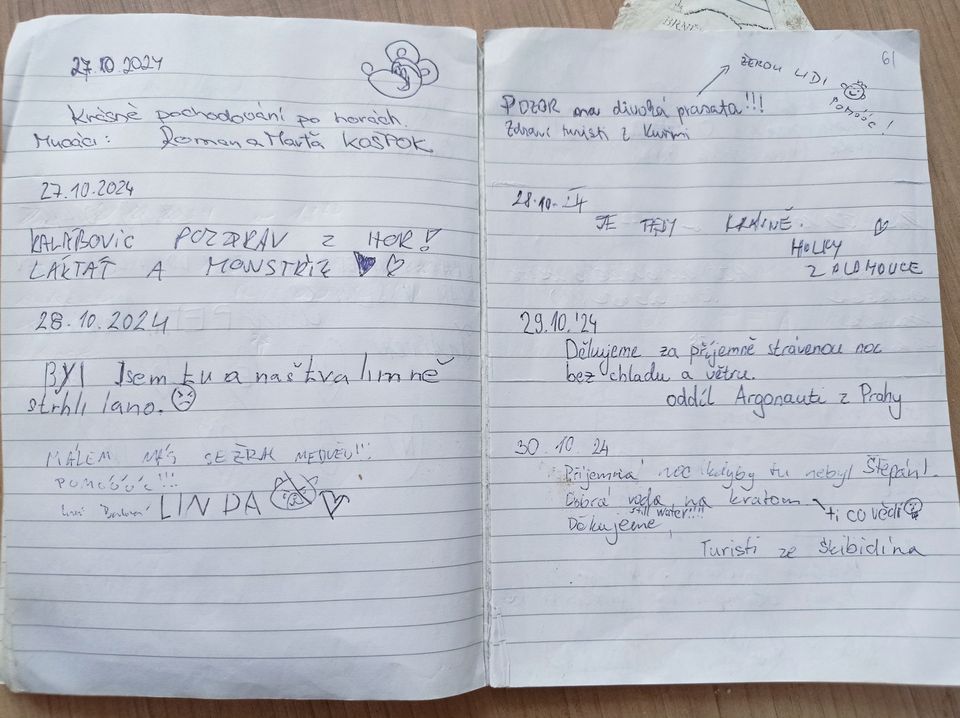 27.10.2024
Krásné pochodování po horách
Roman a Marťa KOSTOK
27.10.2024
POZDRAV Z HOR!
LAKTAT A MONSTRÍZ
28.10.2024
BYl Jsem tu a naštvali mně
strhli lano.
MÁLEM NÁS SEŽRAL MEDVĚD!!!
POMÓÓÓC!!!
LINDA
61
ŽEROU LIDI
POMÓÓC!
POZOR na divoká prasata!!!
Zdraví turisti z Kuřimi
28.10.24
JE TADY KRÁSNĚ.
HOLKY
Z OLOMOUCE
29.10.'24
Děkujeme za příjemně strávenou noc
bez chladu a větru.
oddíl Argonauti z Prahy
30.10.24
Příjemná noc kdyby tu nebyl Štěpán!
Dobrá voda na kratom
still water!!!!
ti co vědí
Děkujeme,
Turisti ze Skibidina